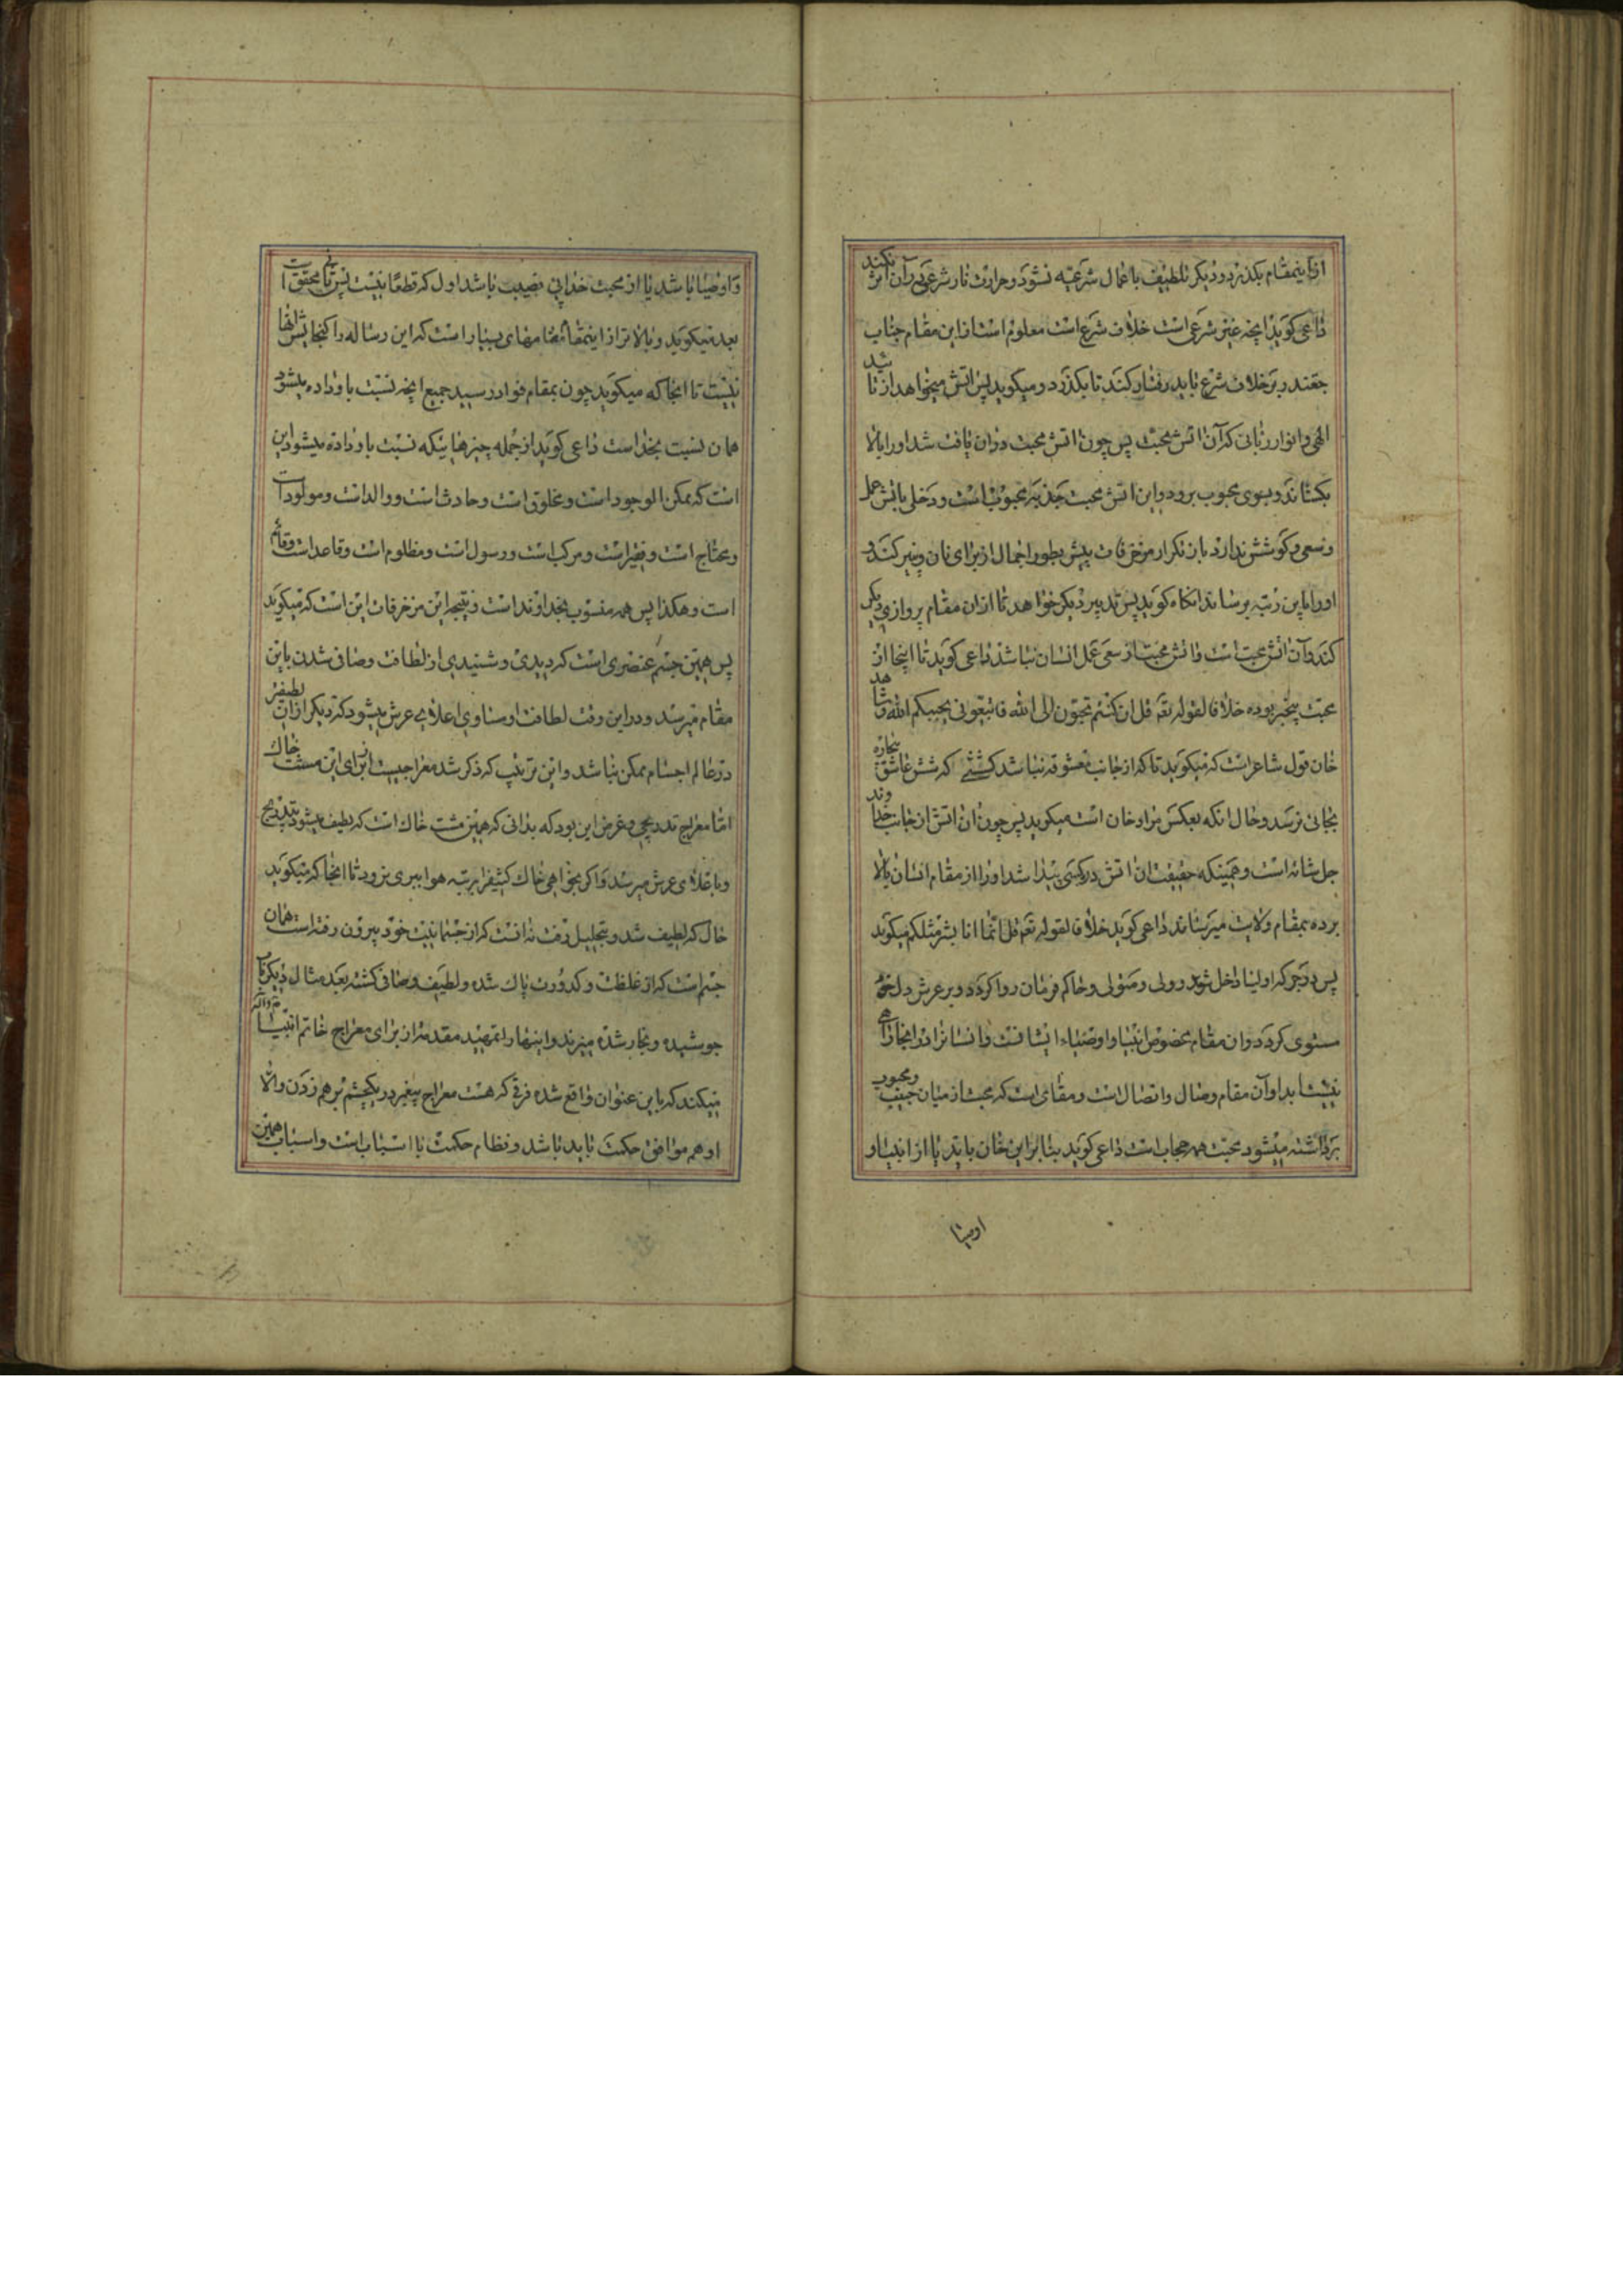 ازاینمقام بکذرد و دیکر تلطیف باعمال شرعیه نشود و حرارت نار شرعی در آن اثر نکند
داعی کوید آنچه غیر شرعی است خلاف شرع است معلوم است از این مقام جناب
جعفر بر خلاف شرع باید رفتار کند تا بکذرد و میکوید پس اتش میخواهد از تا ئید
الهی و انوار ربانی که آن اتش محبت پس چون اتش محبت دران یافت شد او را بالا
بکشاند و بسوی محبوب برود و این اتش محبت جذبه محبوب است و دخلی باتش عمل
و سعی و کوشش ندارد باز تکرار مزخرفات پیش بطور اجمال از برای نان و پنیر کند و
او را باین رتبه برساند انکاه کوید پس تدبیر دیکر خواهد تا ازان مقام پروازی دیکر
کند و آن اتش محبت است و اتش محبت از سعی و عمل انسان نباشد داعی کوید تا اینجا از
محبت بیخبر بوده خلافا لقوله تعم قل ان کنتم تحبون الله فاتبعونی یحببکم الله و شاهد
خان قول شاعر است که میکوید تا که از جانب معشوقه نباشد کششی کوشش عاشق بیچاره
بجائی نرسد و حال انکه بعکس مراد خان است میکوید پس چون ان اتش از جانب خداوند
جل شانه است و همینکه حقیقت ان اتش در کسی پیدا شد او را از مقام انسان بالا
برده بمقام ولایت میرساند داعی کوید خلافا لقوله تعم قل انما انا بشر مثلکم میکوید
پس در جرکه اولیا داخل شود و ولی و متولی و حاکم فرمان روا کردد و بر عرش دل خود
مستوی کردد و ان مقام مخصوص انبیا و اوصیاء ایشانست و انسانرا در انجا راهی
نیست ابدا و آن مقام وصال و اتصال است و مقامی است که محبت از میان حبیب و محبوب
برداشته میشود محبت همه حجاب است داعی کوید بنا براین خان باید یا از انبیا و
اوصیا
و اوصیا باشد یا از محبت خدایی نصیب باشد اول که قطعا نیست پس ثانی محقق است
بعد میکوید و بالاتر از اینمقام مقامهای بسیار است که این رساله را کنجایش انها
نیست تا انجا که میکوید چون بمقام فواد رسید جمیع آنچه نسبت باو داده میشود
همان نسبت بخدا است داعی کوید از جمله چیزهائیکه نسبت باو داده میشود این
است که ممکن الوجود است و مخلوق است و حادث است و والد است و مولود است
و محتاج است و فقیر است و مرکب است و رسول است و مظلوم است و قاعد است و قائم
است و هکذا پس همه منسوب بخداوند است و نتیجه این مزخرفات این است که میکوید
پس همین جسم عنصری است که دیدی و شنیدی از لطافت و صافی شدن باین
مقام میرسد و در این وقت لطافت او مساوی اعلای عرش میشود که دیکر از ان لطیفتر
در عالم اجسام ممکن نباشد و این ترتیب که ذکر شد معراجیست از برای این مشت خاک
اما معراج تدریجی و غرض این بود که بدانی که همین مشت خاک است که لطیف میشود بتدریج
و باعلای عرش میرسد و اکر بخواهی خاک کثیف را برتبه هوا ببری بزود تا انجا که میکوید
خاک که لطیف شد و بتحلیل رفت نه انست که از جسمانیت خود بیرون رفته است همان
جسم است که از غلظت و کدورت پاک شده و لطیف و صافی کشته بعد مثال دیکر بآب
جوشیده و بخار شده میزند و اینها را تمهید مقدمه از برای معراج خاتم انبیا
میکند که باین عنوان واقع شده فرقی که هست معراج پیغمبر در یکچشم برهم زدن والا
او هم موافق حکمت باید باشد و نظام حکمت با اسباب است و اسباب همین